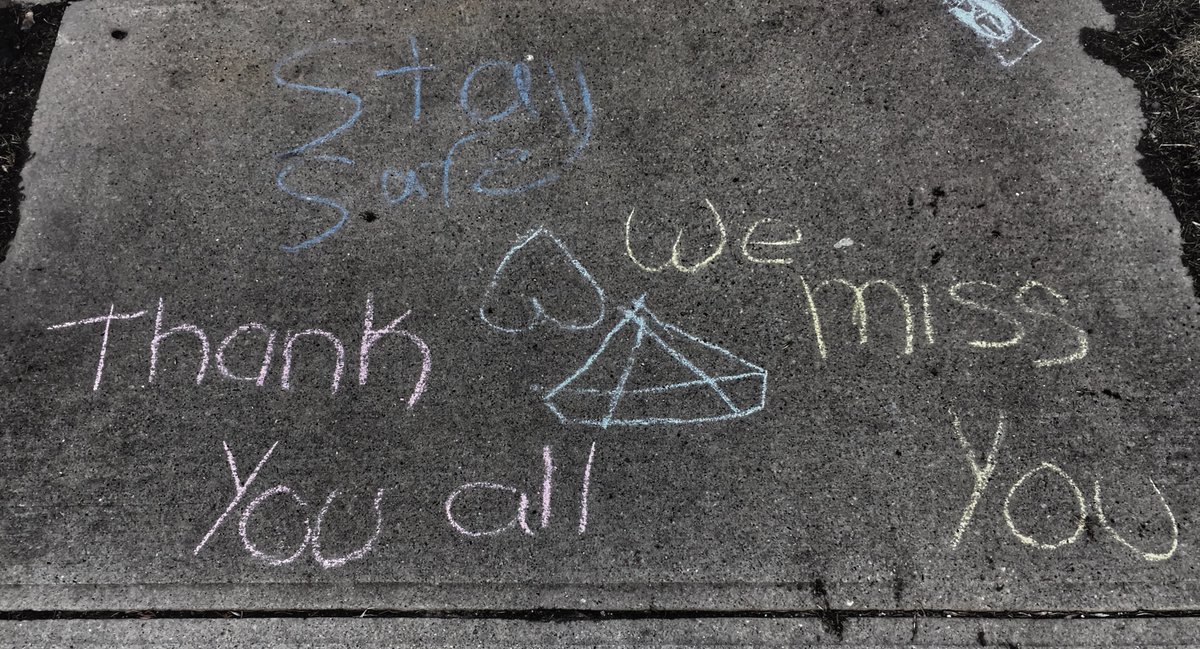 Stay
Safe
We
miss
You
Thank
You all